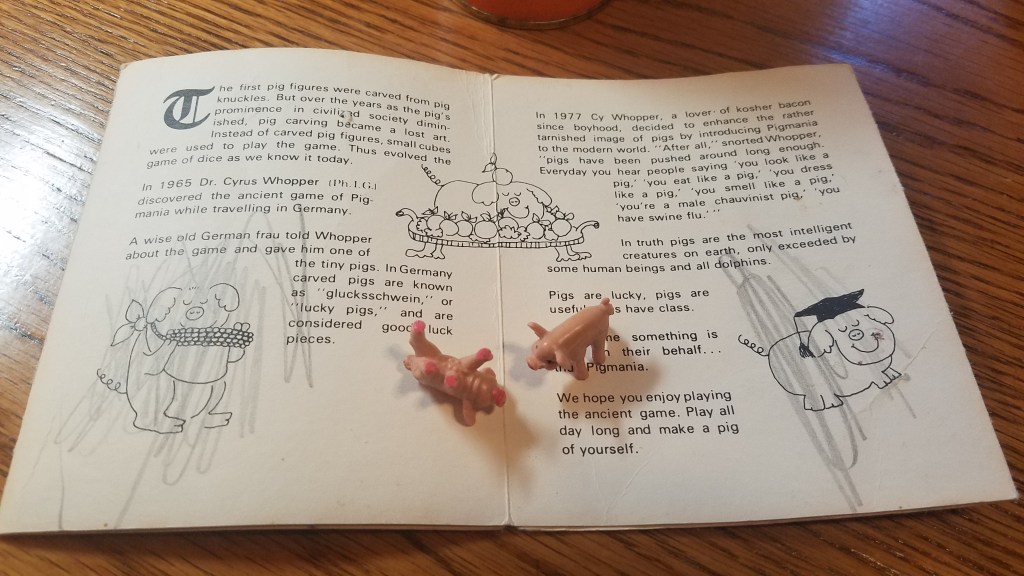 The first pig figures were carved from pig
knuckles. But over the years as the pig's
prominence in civilized society dimin-
ished, pig carving became a lost art.
Instead of carved pig figures, small cubes
were used to play the game. Thus evolved the
game of dice as we know it today.
In 1965 Dr. Cyrus Whopper (Ph.I.G.)
discovered the ancient game of Pig-
mania while travelling in Germany.
A wise old German frau told Whopper
about the game and gave him one of
the tiny pigs. In Germany
carved pigs are known
as "glucksschwein," or
"lucky pigs," and are
considered good luck
pieces.
In 1977 Cy Whopper, a lover of kosher bacon
since boyhood, decided to enhance the rather
tarnished image of pigs by introducing Pigmania
to the modern world. "After all," snorted Whopper,
"pigs have been pushed around long enough.
Everyday you hear people saying 'you look like a
pig,' 'you eat like a pig,' 'you dress
like a pig,' 'you smell like a pig,'
'you're a male chauvinist pig,' 'you
have swine flu.' "
In truth pigs are the most intelligent
creatures on earth, only exceeded by
some human beings and all dolphins.
Pigs are lucky, pigs are
useful have class.
something is
their behalf...
Pigmania.
We hope you enjoy playing
the ancient game. Play all
day long and make a pig
of yourself.